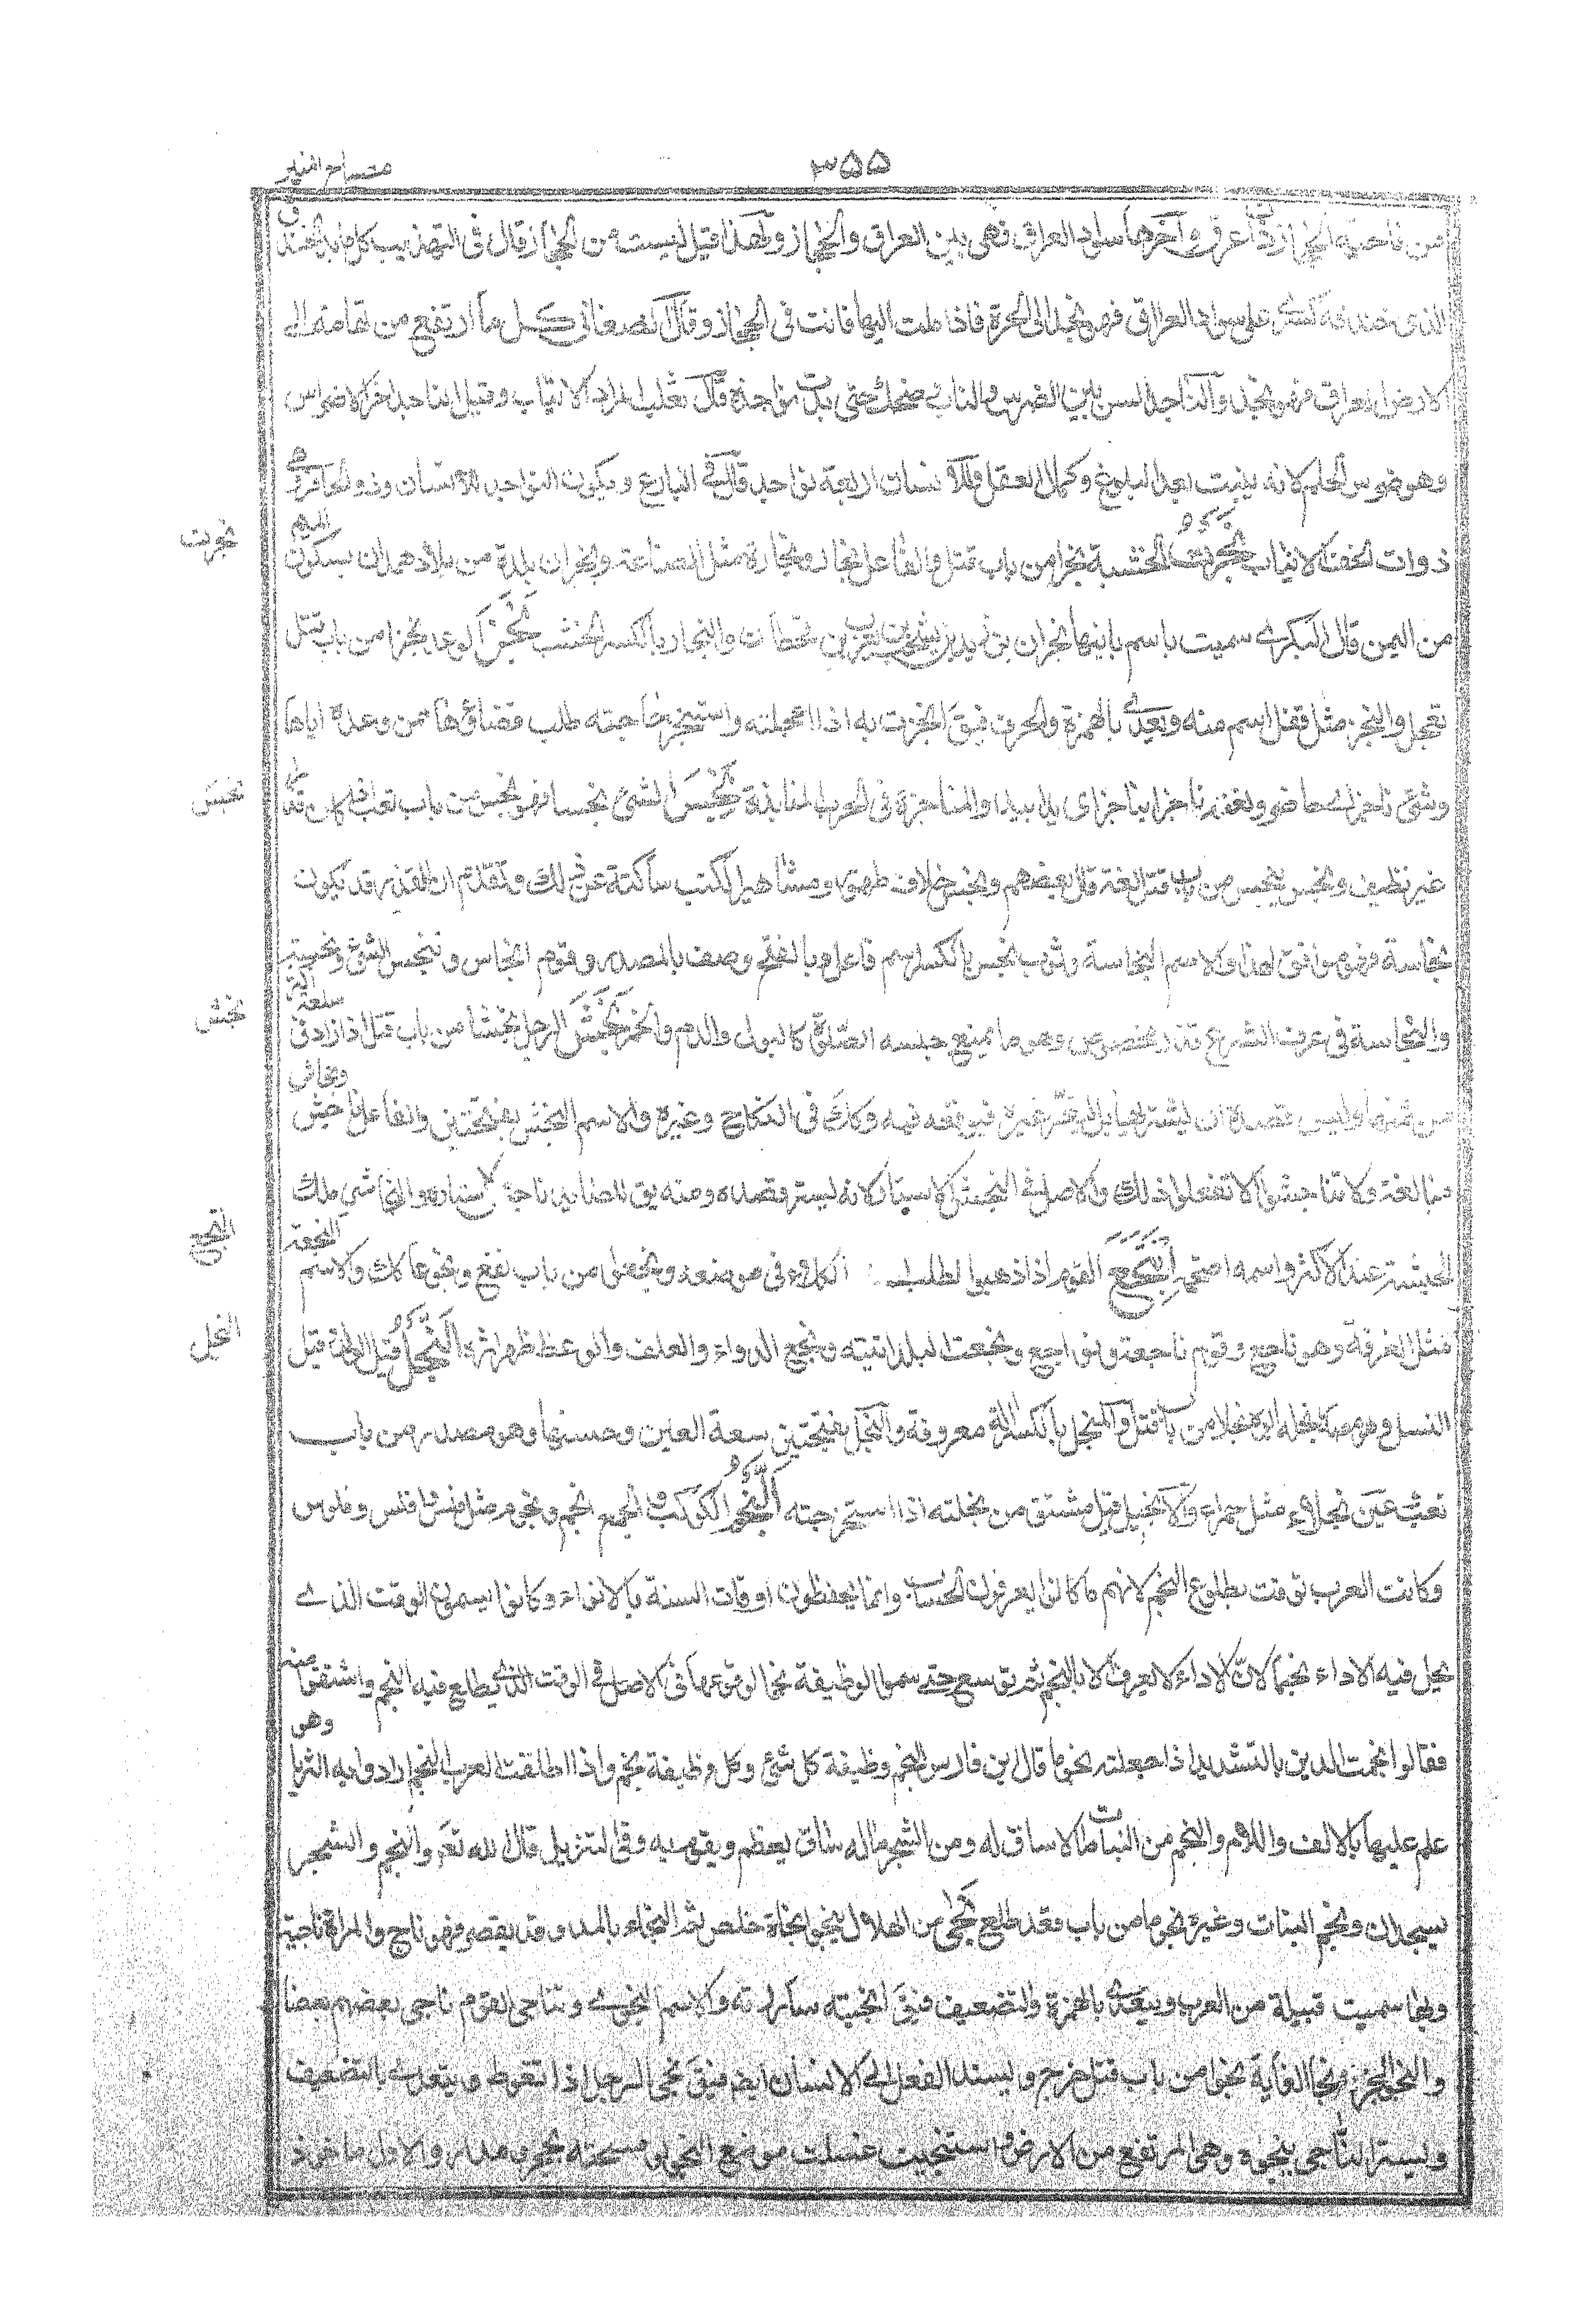 ٣۵۵
مصباح المنير
من ناحية الحجاز ذات عرق وآخرها سواد العراق فهى بين العراق والحجاز ولهذا قيل ليست من الحجاز قال فى التهذيب كل ما بدا لخندق
الذى خندقه كسرى على سواد العراق فهو نجد الى الحرة فاذا ملت اليها فانت فى الحجاز وقال الصغانى كل ما ارتفع من تهامة الى
الارض العراق فهو نجد والناجذ السن بين الضرس والناب ضحك حتى بدت نواجذه قال ثعلب المراد الانياب وقيل الناجذ آخر الاضراس
وهو ضرس الحلم لانه ينبت بعد البلوغ وكمال العقل وللانسان اربعة نواجذ قال فى البارع ويكون النواجذ للانسان وذو الحافر وهى
ذوات الخف الانياب نجرت الخشبة نجرا من باب قتل والفاعل نجار ونجارة مثل الصناعة ونجران بلدة من بلاد همدان بسكون الميم
نجرت
من اليمن قال البكرى سميت باسم بانيها نجران بن زيد بن يشجب بن يعرب بن قحطان والنجار بالكسر الخشب نجز الوعد نجزا من باب قتل
تعجل والنجز مثل قفل اسم منه ويعدى بالهمزة والحرف فيق انجزت به اذا عجلته واستنجز حاجته طلب قضاؤها ممن وعده اياها
وشئ ناجز اى حاضر وبعته ناجزا بناجز اى يدا بيد والمناجزة فى الحرب المنابذة نجس الشئ نجسا فهو نجس من باب تعب اذا كان قذرا
نجس
غير نظيف ونجس ينجس من باب قتل لغة قال بعضهم ونجس خلاف طهر ومشاهير الكتب ساكتة عن ذلك وتقدم ان القذر قد يكون
نجاسة فهو موافق لهذا والاسم النجاسة وثوب نجس بالكسر اسم فاعل وبالفتح وصف بالمصدر وقوم انجاس وتنجس الشئ ونجسته
والنجاسة فى عرف الشرع قذر مخصوص وهو ما يمنع جنسه الصلوة كالبول والدم والخمر نجش الرجل نجشا من باب قتل اذا زاد فى سلعة اكثر
نجش
من ثمنها وليس قصده ان يشتريها بل ليغر غيره فيوقعه فيه وكذلك فى النكاح وغيره والاسم النجش بفتحتين والفاعل ناجش ونجاش
مبالغة ولا تناجشوا لا تفعلوا ذلك والاصل فى النجش الاستتار لانه يستر قصده ومنه يق للصايد ناجش لاستتاره والنجاشى ملك
الحبشة عند الاكثر واسمه اصحمة انتجع القوم اذا ذهبوا لطلب الكلاء فى موضعه ونجعوا من باب نفع ونجوعا كذلك والاسم النجعة
النجع
مثل الغرفة وهو ناجع وقوم ناجعة ونواجع ونجعت البلد اتيته ونجع الدواء والعلف والوعظ ظهر اثره النجل قيل الولد وقيل
النجل
النسل وهو مصدر نجله ابوه نجلا من باب قتل والمنجل بالكسر آلة معروفة والنجل بفتحتين سعة العين وحسنها وهو مصدر من باب
تعب عين نجلاء مثل حمراء والانجيل قيل مشتق من نجلته اذا استخرجته النجم الكوكب والجمع انجم ونجوم مثل فلس وافلس وفلوس
وكانت العرب توقت بطلوع النجم لانهم ما كانوا يعرفون الحساب وانما يحفظون اوقات السنة بالانواء وكانوا يسمون الوقت الذى
يحل فيه الاداء نجما لان الاداء لا يعرف الا بالنجم ثم توسع حتى سموا الوظيفة نجما لوقوعها فى الاصل فى الوقت الذى يطلع فيه النجم واشتقوا منه
فقالوا نجمت الدين بالتشديد اذا جعلته نجوما قال ابن فارس النجم وظيفة كل شئ وكل وظيفة نجم واذا اطلقت العرب النجم ارادوا به الثريا وهو
علم عليها بالالف واللام والنجم من النبات ما لا ساق له ومن الشجر ماله ساق يعظم ويقوم به وفى التنزيل قال الله تعم والنجم والشجر
يسجدان ونجم النبات وغيره نجوما من باب قعد طلع نجى من الهلاك ينجو نجاة خلص ثم النجاء بالمد وقد يقصر فهو ناج والمراة ناجية
وبها سميت قبيلة من العرب ويتعدى بالهمزة والتضعيف فيق انجيته سارر ته والاسم النجوى وتناجى القوم ناجى بعضهم بعضا
والنجو الخرء ونجا الغاية نجوا من باب قتل خرج ويسند الفعل الى الانسان ايضا فيق نجى الرجل اذا تغوط ويتعدى بالتضعيف
وليستر الناجى بنجوة وهى المرتفع من الارض واستنجيت غسلت موضع النجو او مسحته بحجر او مدر والاول ماخوذ